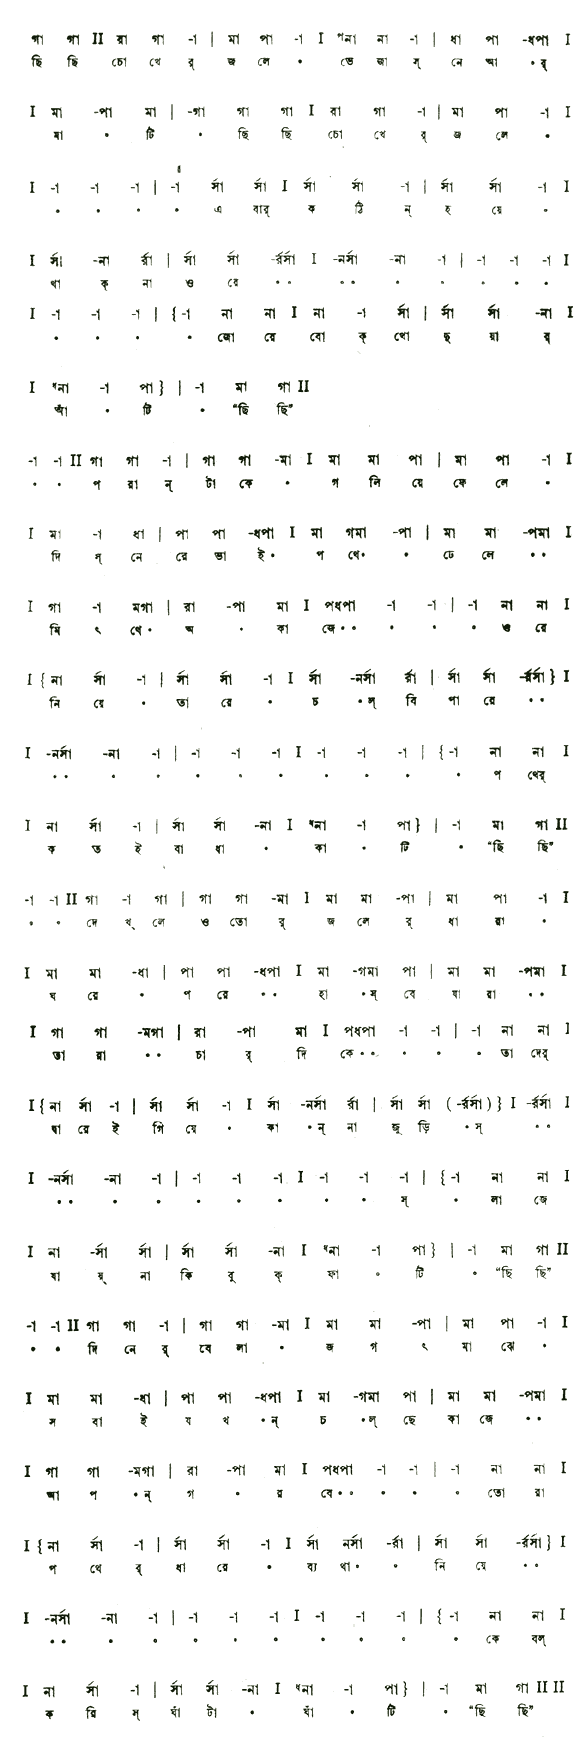 গা গা II রা গা -া | মা পা -া I ধনা না -া | ধা পা -ধপা I
ছি ছি চো খে র্ জ লে • ভে জা স্ নে আ • র্
I মা -পা মা | -গা গা গা I রা গা -া | মা পা -া I
মা • টি • ছি ছি চো খে র্ জ লে •
I -া -া -া | -া র্সা র্সা I র্সা র্সা -া | র্সা র্সা -া I
• • • • এ বার্ ক ঠি ন্ হ য়ে •
I র্সা -না র্রা | র্সা র্সা -র্রর্সা I -নর্সা -না -া | -া -া -া I
থা ক্ না ও রে • • • • • • • • •
I -া -া -া | {-া না না I না -া র্সা | র্সা র্সা -না I
• • • • জো রে বো ক্ খো দু য়া র্
I ধনা -া পা} | -া মা গা II
আঁ • টি • “ছি ছি”
-া -া II গা গা -া | গা গা -মা I মা মা পা | মা পা -া I
• • প রা ন্ টা কে • গ লি য়ে ফে লে •
I মা -া ধা | পা পা -ধপা I মা গমা -পা | মা মা -পমা I
দি স্ নে রে ভা ই • প থে • • ঢে লে • •
I গা -া মগা | রা -পা মা I পধপা -া -া | -া না না I
মি ৎ থে • অ • কা জে • • • • • ও রে
I {না র্সা -া | র্সা র্সা -া I র্সা -নর্সা র্রা | র্সা র্সা -র্রর্সা} I
নি য়ে • তা রে • চ • ল্ বি পা য়ে • •
I -নর্সা -না -া | -া -া -া I -া -া -া | {-া না না I
• • • • • • • • • • • প থের্
I না র্সা -া | র্সা র্সা -না I ধনা -া পা} | -া মা গা II
ক ত ই বা ধা • কা • টি • “ছি ছি”
-া -া II গা -া গা | গা গা -মা I মা মা -পা | মা পা -া I
• • দে খ্ লে ও তো র্ জ লে র্ ধা রা •
I মা মা -ধা | পা পা -ধপা I মা -গমা পা | মা মা -পমা I
ঘ রে • প রে • • হা • স্ বে যা রা • •
I গা গা -মগা | রা -পা মা I পধপা -া -া | -া না না I
তা রা • • চা র্ দি কে • • • • • তা দের্
I {না র্সা -া | র্সা র্সা -া I র্সা -নর্সা র্রা | র্সা র্সা (-র্রর্সা)} I -র্রর্সা I
দ্বা রে ই গি য়ে • কা • ন্ না জু ড়ি • স্ • •
I -নর্সা -না -া | -া -া -া I -া -া -া | {-া না না I
• • • • • • • • • স্ • লা জে
I না -র্সা র্সা | র্সা র্সা -না I ধনা -া পা} | -া মা গা II
যা য়্ না কি বু ক্ ফা • টি • “ছি ছি”
-া -া II গা গা -া | গা গা -মা I মা মা -পা | মা পা -া I
• • দি নে র্ বে লা • জ গ ৎ মা ঝে •
I মা মা -ধা | পা পা -ধপা I মা -গমা পা | মা মা -পমা I
স বা ই য খ • ন্ চ • ল্ ছে কা জে • •
I গা গা -মগা | রা -পা মা I পধপা -া -া | -া না না I
আ প • ন্ গ • র বে • • • • • তো রা
I {না র্সা -া | র্সা র্সা -া I র্সা নর্সা -র্রা | র্সা র্সা -র্রর্সা} I
প থে র্ ধা রে • ব্য থা • • নি য়ে • •
I -নর্সা -না -া | -া -া -া I -া -া -া | {-া না না I
• • • • • • • • • • • কে বল্
I না র্সা -া | র্সা র্সা -না I ধনা -া পা} | -া মা গা II II
ক রি স্ ঘাঁ টা • ঘাঁ • টি • “ছি ছি”